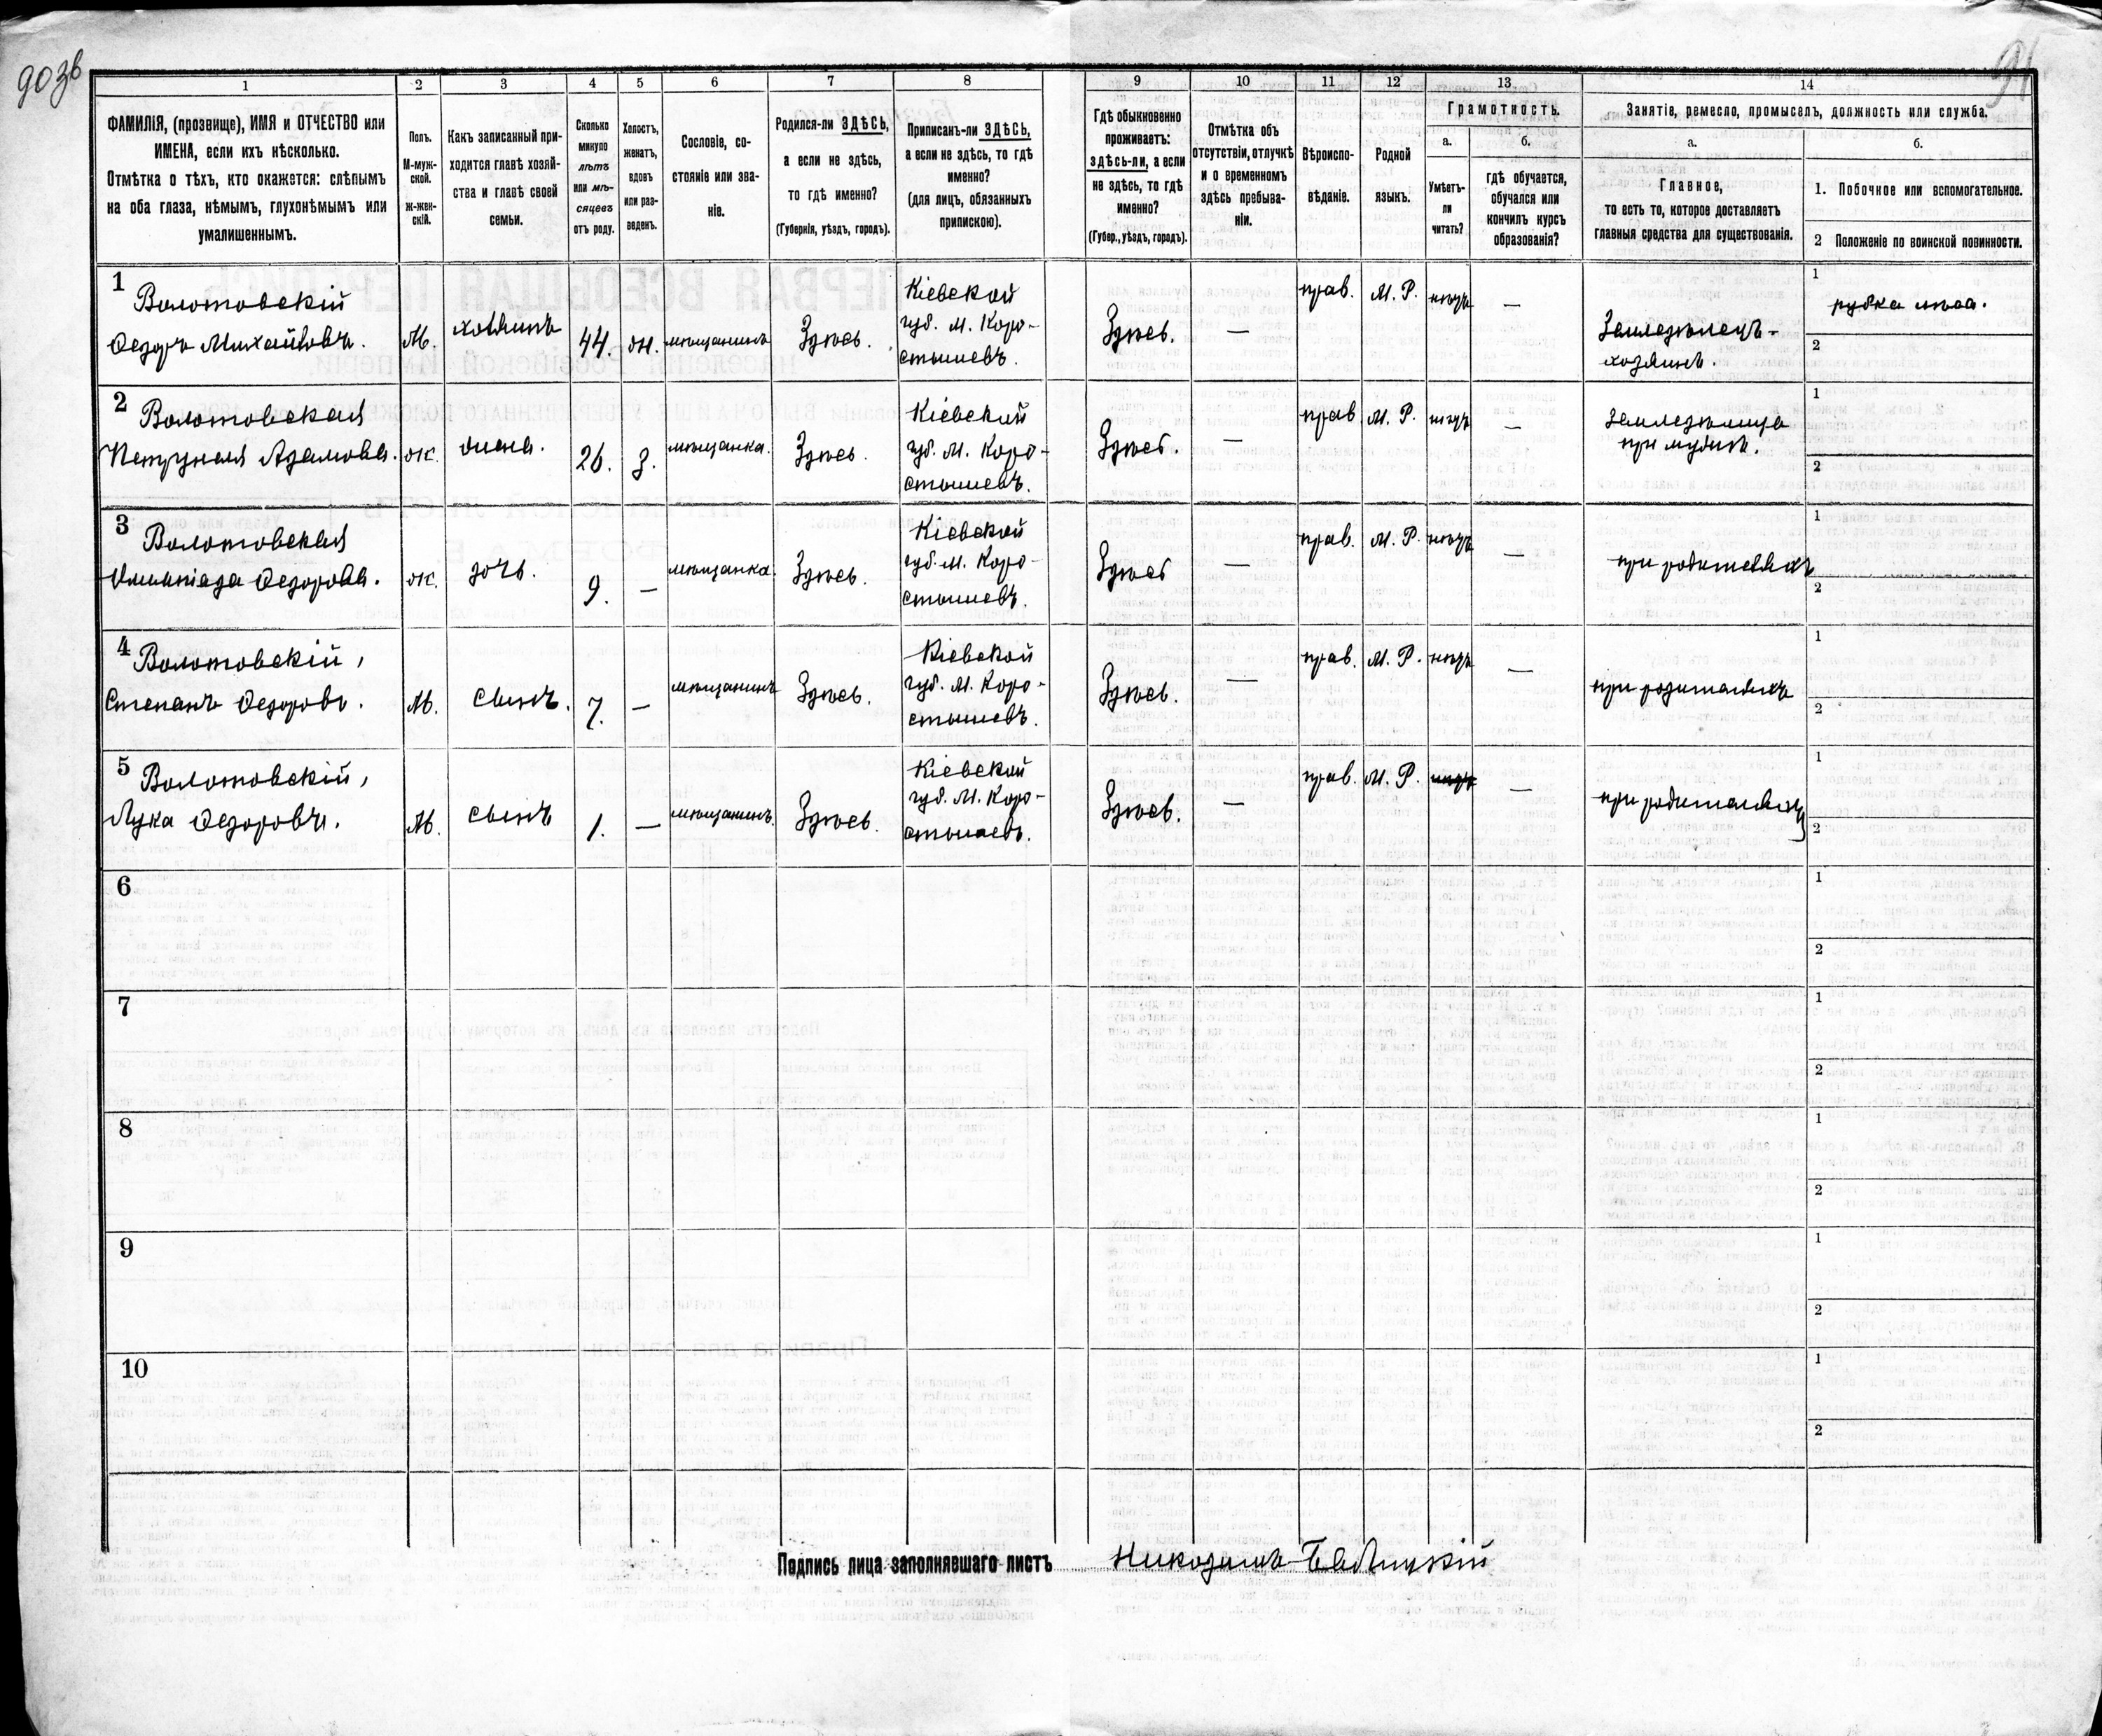 903в
91
1
2
3
4
5
6
7
8
9
10
11
12
13
14
ФАМИЛІЯ, (прозвище), ИМЯ и ОТЧЕСТВО или
ИМЕНА, если ихъ нѣсколько.
Отмѣтка о тѣхъ, кто окажется: слѣпымъ
на оба глаза, нѣмымъ, глухонѣмымъ или
умалишеннымъ.
Полъ.
М-муж-
ской.
Ж-жен-
скій.
Какъ записанный при-
ходится главѣ хозяй-
ства и главѣ своей
семьи.
Сколько
минуло
лѣтъ
или мѣ-
сяцевъ
отъ роду.
Холостъ,
женатъ,
вдовъ
или раз-
веденъ.
Сословіе, со-
стояніе или зва-
ніе.
Родился-ли ЗДѢСЬ,
а если не здѣсь,
то гдѣ именно?
(Губернія, уѣздъ, городъ).
Приписанъ-ли ЗДѢСЬ,
а если не здѣсь, то гдѣ
именно?
(для лицъ, обязанныхъ
припискою).
Гдѣ обыкновенно
проживаетъ:
здѣсь-ли, а если
не здѣсь, то гдѣ
именно?
(Губер., уѣздъ, городъ).
Отмѣтка объ
отсутствіи, отлучкѣ
и о временномъ
здѣсь пребыва-
ніи.
Вѣроиспо-
вѣданіе.
Родной
языкъ.
Грамотность.
а.
Умѣетъ-
ли
читать?
б.
гдѣ обучается,
обучался или
кончилъ курсъ
образованія?
Занятіе, ремесло, промыселъ, должность или служба.
а.
Главное,
то есть то, которое доставляетъ
главныя средства для существованія.
б.
1. Побочное или вспомогательное.
2 Положеніе по воинской повинности.
1
Волотовскій
Ѳедоръ Михайловъ.
М.
хозяинъ
44.
ж.
мѣщанинъ
Здѣсь.
Кіевской
губ. М. Коро-
стышевъ.
Здѣсь.
—
прав.
М. Р.
нѣтъ
—
Земледѣлецъ-
хозяинъ.
1 рубка лѣса.
2
2
Волотовская
Петрунеля Адамова.
ж.
жена.
26.
з.
мѣщанка.
Здѣсь.
Кіевской
губ. М. Коро-
стышевъ.
Здѣсь.
—
прав
М. Р.
нѣтъ
—
земледѣлица
при мужѣ.
1
2
3
Волотовская
Ѳедорова.
ж.
дочь.
9.
—
мѣщанка.
Здѣсь.
Кіевской
губ. М. Коро-
стышевъ.
Здѣсь
—
прав.
М. Р.
нѣтъ
—
при родителяхъ
1
2
4
Волотовскій,
Степанъ Ѳедоровъ.
М.
сынъ.
7.
—
мѣщанинъ
Здѣсь.
Кіевской
губ. М. Коро-
стышевъ.
Здѣсь.
—
прав.
М. Р.
нѣтъ
—
при родителяхъ
1
2
5
Волотовскій,
Лука Ѳедоровъ.
М.
сынъ
1.
—
мѣщанинъ.
Здѣсь.
Кіевской
губ. М. Коро-
стышевъ.
Здѣсь.
—
прав.
М. Р.
нѣтъ
—
при родителяхъ
1
2
6
1
2
7
1
2
8
1
2
9
1
2
10
1
2
Подпись лица заполнявшаго листъ Никодимъ